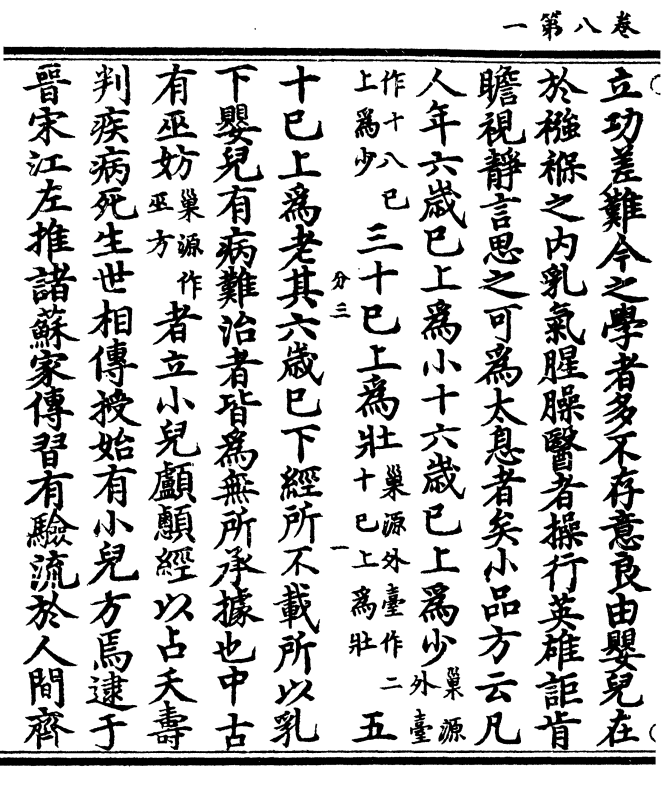 卷八第一
立功差難今之學者多不存意良由嬰兒在
於襁褓之内乳氣腥臊醫者操行英雄詎肯
瞻視靜言思之可爲太息者矣小品方云凡
人年六歲已上爲小十六歲已上爲少巢源外臺
作十八已上爲少三十已上爲壯巢源外臺作二十已上爲壯五
十已上爲老其六歲已下經所不載所以乳
下嬰兒有病難治者皆爲無所承據也中古
有巫妨巢源作巫方者立小兒顱顖經以占夭壽
判疾病死生世相傳授始有小兒方焉逮于
晉宋江左推諸蘇家傳習有驗流於人間齊
分三
一